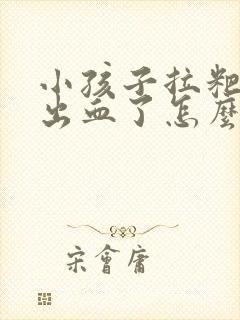 小孩子拉粑
出血了怎麼
宋會庸